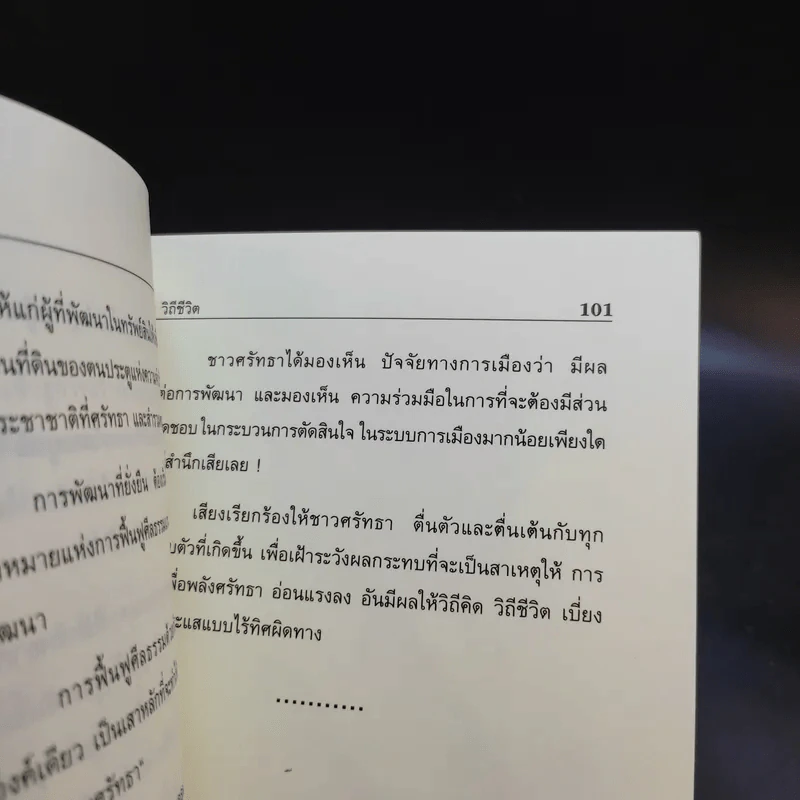 ให้แก่ผู้ที่พัฒนาในทรัพย์สิน
นที่ดินของตนประตูแห่งความ
ระชาชาติที่ศรัทธา และสำรวม
การพัฒนาที่ยั่งยืน ต้อง
หมายแห่งการฟื้นฟูศีลธรรม
ฒนา
การฟื้นฟูศีลธรรม
องค์เดียว เป็นเสาหลักที่จะ
ศรัทธา"
วิถีชีวิต 101
ชาวศรัทธาได้มองเห็น ปัจจัยทางการเมืองว่า มีผล
ต่อการพัฒนา และมองเห็น ความร่วมมือในการที่จะต้องมีส่วน
ดชอบ ในกระบวนการตัดสินใจ ในระบบการเมืองมากน้อยเพียงใด
สำนึกเสียเลย !
เสียงเรียกร้องให้ชาวศรัทธา ตื่นตัวและตื่นเต้นกับทุก
บตัวที่เกิดขึ้น เพื่อเฝ้าระวังผลกระทบที่จะเป็นสาเหตุให้ การ
พื่อพลังศรัทธา อ่อนแรงลง อันมีผลให้วิถีคิด วิถีชีวิต เบี่ยง
ะแสแบบไร้ทิศผิดทาง
...........